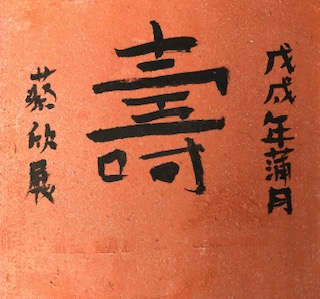 戊戌年蒲月
壽
蔡欣晨